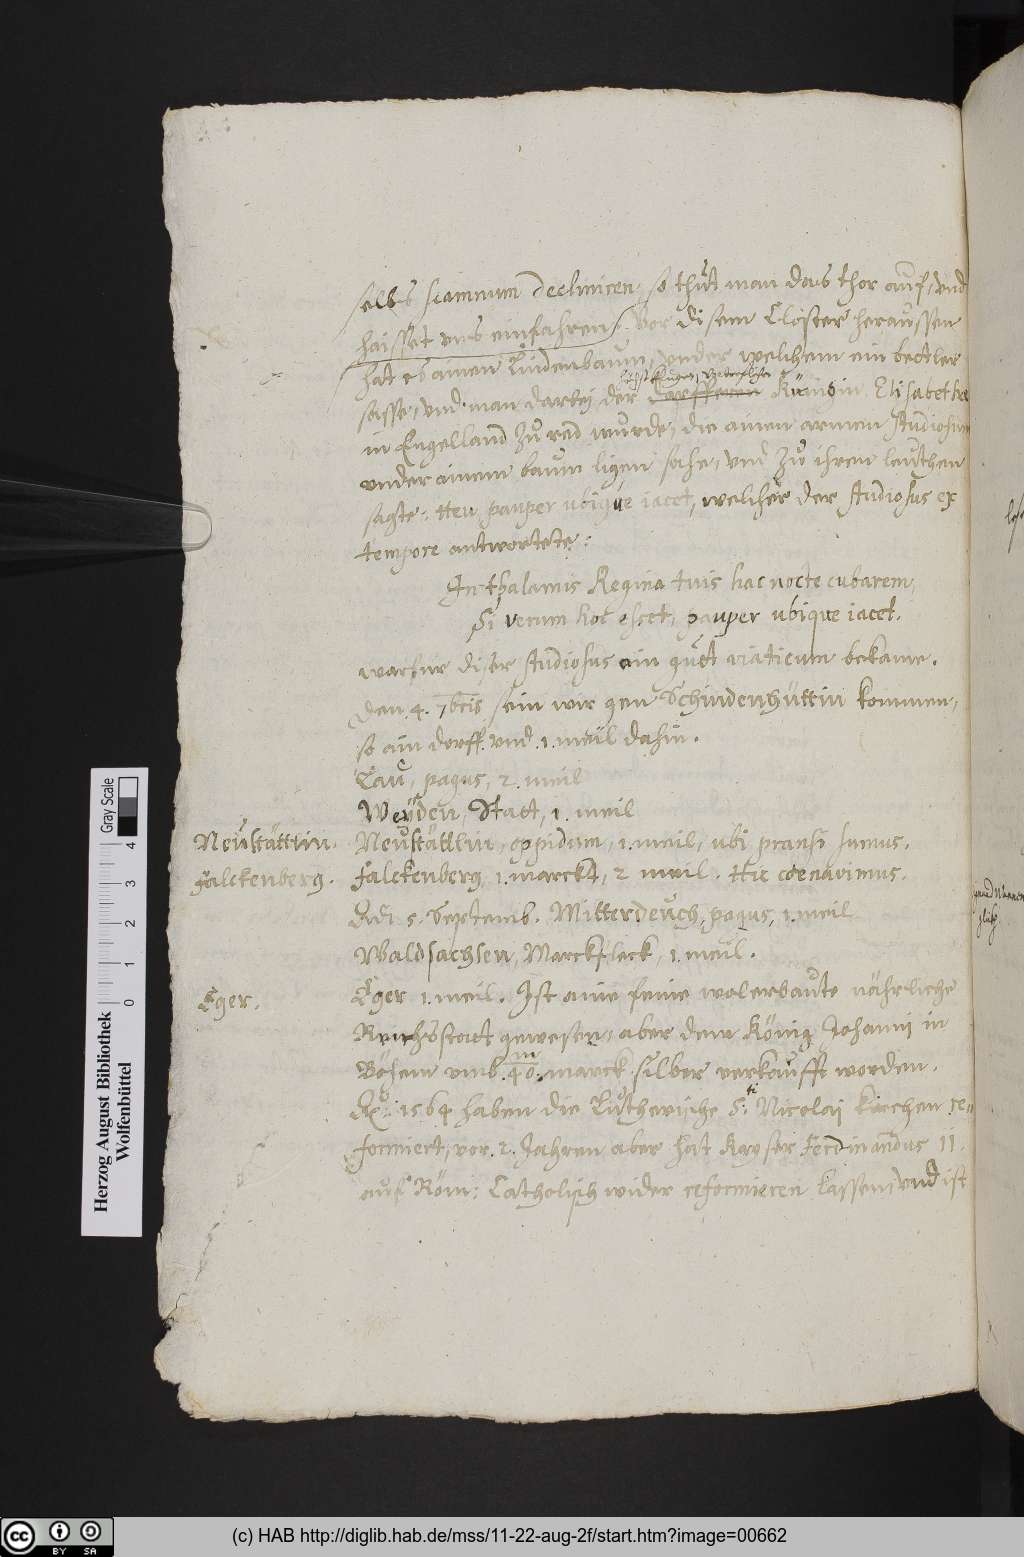 selbs scamnum declinieren, so thüt man das thor auf, und
haisset uns einfahren. Vor disem Closter heraussen
hat es ainen Lindenbaum, under welchem ein bettler
sasse, und man darbej der Künigin Elisabethæ
in Engelland zu red wurde, die ainen armen Studiosum
under ainem baum ligen sahe, und zu ihren leuthen
sagte: Heu pauper ubique iacet, welcher der Studiosus ex
tempore antwortete:
In thalamis Regina tuis hac nocte cubarem,
Si verum hoc esset, pauper ubique iacet.
warfür diser Studiosus ain gutt viaticum bekame.
Den 4. 7bris sein wir gen Schindenhüttin kommen,
so ain dorff und 1. meil dahin.
Lau, pagus, 2. meil
Weyden, Statt, 1. meil
Neustättin.
Neustättlin, oppidum, 1. meil, ubi pransi sumus.
Falckenberg.
Falckenberg, 1. marckt, 2 meil. Hic coenavimus.
Adi 5. Septemb. Mitterdeuch, pagus, 1. meil
Waldsachsen, Marckfleck, 1. meil.
Eger.
Eger 1. meil. Ist aine feine wolerbaute nährliche
Reichsstatt gewesen, aber dem König Johanni in
Böhem umb 40. m marck silber verkaufft worden.
Ao. 1564 haben die Lutherische S.ti Nicolaj kirchen re=
formiert, vor 2. Jahren aber hat Kayser Ferdinandus II.
auf Röm: Catholisch wider reformieren lassen, und ist
Gray Scale
0 1 2 3 4
Herzog August Bibliothek
Wolfenbüttel
cc BY SA
(c) HAB http://diglib.hab.de/mss/11-22-aug-2f/start.htm?image=00662